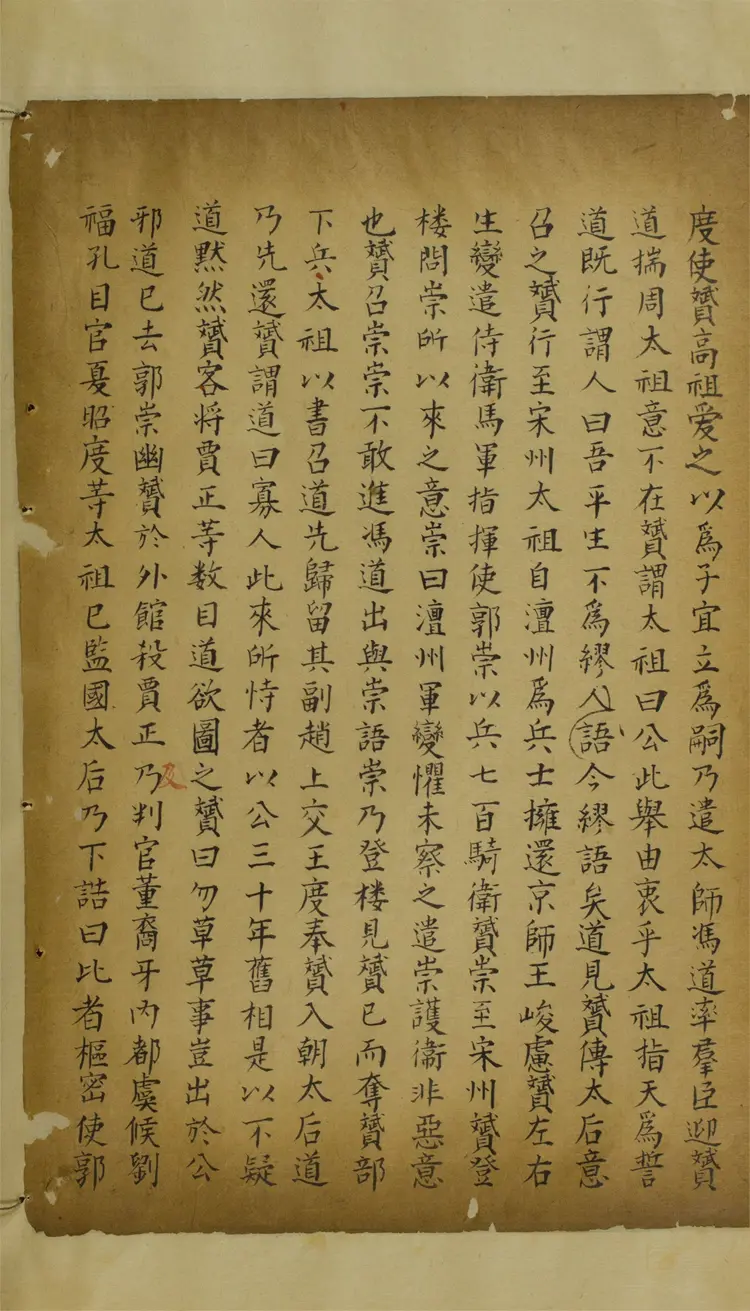 度使贇高祖爱之以爲子宜立爲嗣乃遣太師馮道率羣臣迎贇
道揣周太祖意不在贇謂太祖曰公此舉由衷乎太祖指天爲誓
道既行謂人曰吾平生不爲繆人語今繆語矣道見贇傳太后意
召之贇行至宋州太祖自澶州爲兵士擁還京師王峻慮贇左右
生變遣侍衛馬軍指揮使郭崇以兵七百騎衛贇崇至宋州贇登
楼問崇所以來之意崇曰澶州軍變懼未察之遣崇護衛非惡意
也贇召崇崇不敢進馮道出與崇語崇乃登楼見贇已而奪贇部
下兵太祖以書召道先歸留其副趙上交王度奉贇入朝太后道
乃先還贇謂道曰寡人此來所恃者以公三十年舊相是以不疑
道黙然贇客将賈正等数目道欲圖之贇曰勿草草事豈出於公
邪道已去郭崇幽贇於外館殺賈正乃及判官董裔牙内都虞候劉
福孔目官夏昭度等太祖已監國太后乃下誥曰比者樞密使郭